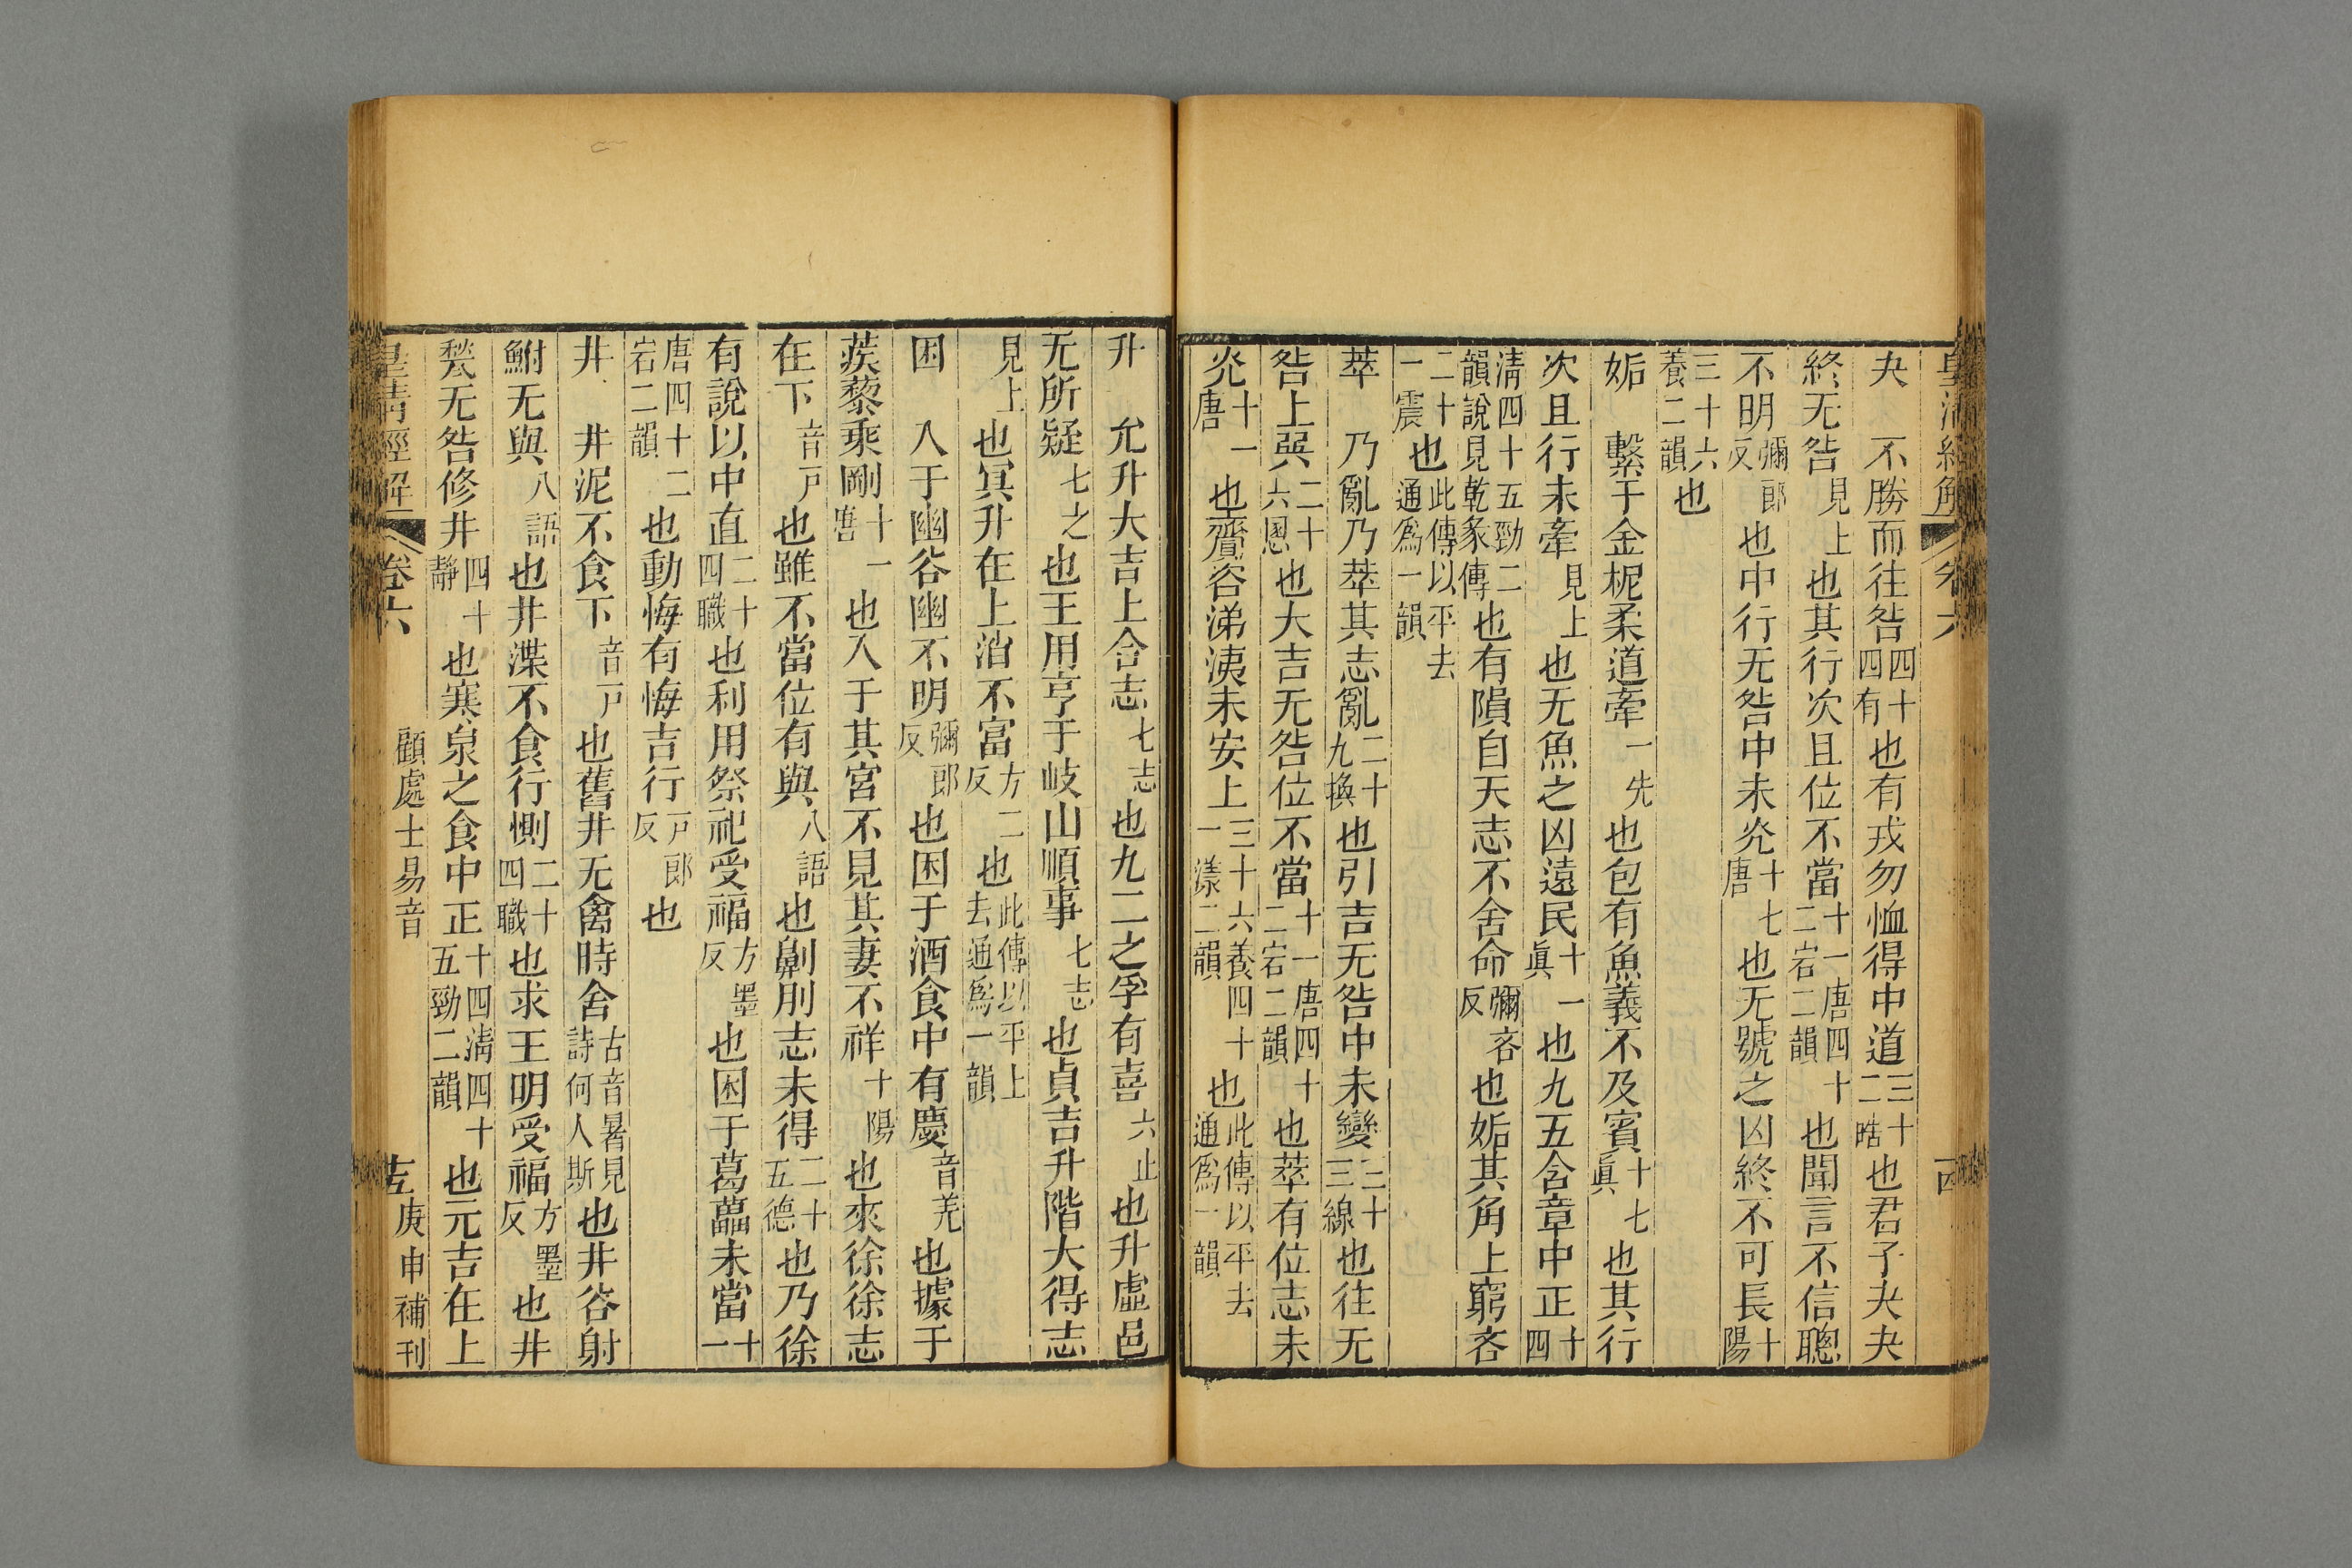 皇清經解 卷六 十四
夬 不勝而往咎四十四有也有戎勿恤得中道三十二晧也君子夬夬
終无咎見上也其行次且位不當十一唐四十二宕二韻也聞言不信聰
不明彌郎反也中行无咎中未光十七唐也无號之凶終不可長十陽
三十六養二韻也
姤 繫于金柅柔道牽一先也包有魚義不及賓十七眞也其行
次且行未牽見上也无魚之凶遠民十一眞也九五含章中正十四
清四十五勁二韻說見乾彖傳也有隕自天志不舍命彌吝反也姤其角上窮吝
二十一震也此傳以平去通爲一韻
萃 乃亂乃萃其志亂二十九換也引吉无咎中未變三十三線也往无
咎上巽二十六慁也大吉无咎位不當十一唐四十二宕二韻也萃有位志未
光十一唐也齎咨涕洟未安上三十六養四十一漾二韻也此傳以平去通爲一韻
升 允升大吉上合志七志也九二之孚有喜六止也升虛邑
无所疑七之也王用亨于岐山順事七志也貞吉升階大得志
見上也冥升在上消不富方二反也此傳以平上去通爲一韻
困 入于幽谷幽不明彌郎反也困于酒食中有慶音羌也據于
蒺藜乘剛十一唐也入于其宮不見其妻不祥十陽也來徐徐志
在下音戶也雖不當位有與八語也劓刖志未得二十五德也乃徐
有說以中直二十四職也利用祭祀受福方墨反也困于葛藟未當十一
唐四十二宕二韻也動悔有悔吉行戶郎反也
井 井泥不食下音戶也舊井无禽時舍古音暑見詩何人斯也井谷射
鮒无與八語也井渫不食行惻二十四職也求王明受福方墨反也井
甃无咎修井四十靜也寒泉之食中正十四清四十五勁二韻也元吉在上
皇清經解 卷六 顧處士易音 庚申補刊